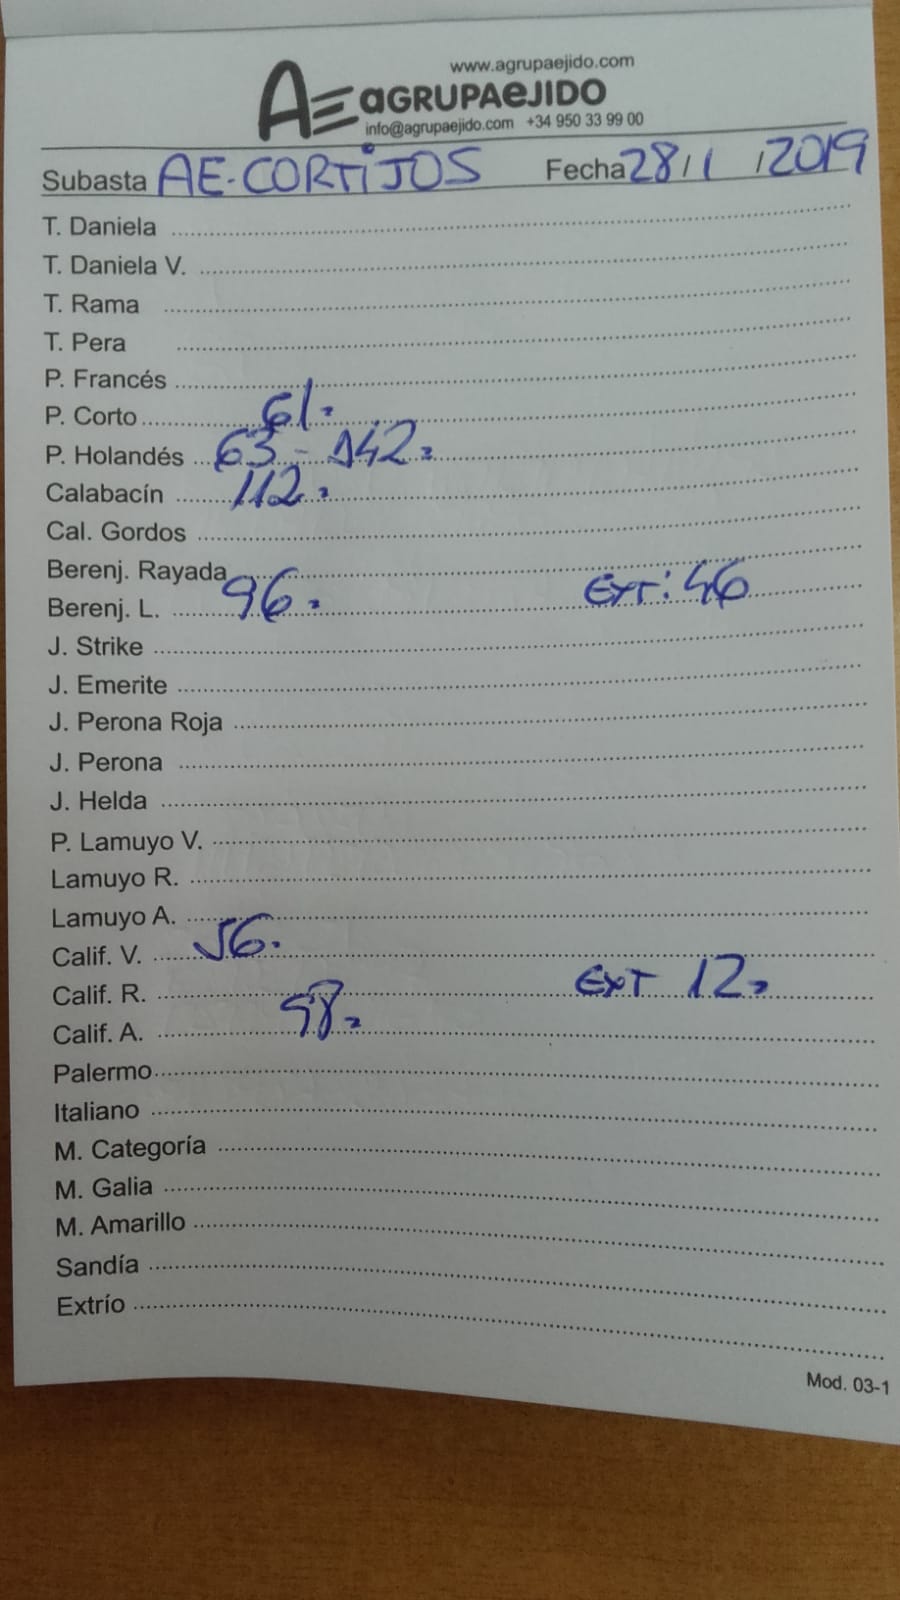 www.agrupaejido.com
AE aGRUPAeJIDO
info@agrupaejido.com +34 950 33 99 00
Subasta AE-CORTiJOS Fecha 28/1/2019
T. Daniela
T. Daniela V.
T. Rama
T. Pera
P. Francés
P. Corto 61.
P. Holandés 63 - 142.
Calabacín 112.
Cal. Gordos
Berenj. Rayada
Berenj. L. 96. EXT: 46
J. Strike
J. Emerite
J. Perona Roja
J. Perona
J. Helda
P. Lamuyo V.
Lamuyo R.
Lamuyo A.
Calif. V. 56.
Calif. R. EXT 12.
Calif. A. 98.
Palermo
Italiano
M. Categoría
M. Galia
M. Amarillo
Sandía
Extrío
Mod. 03-1